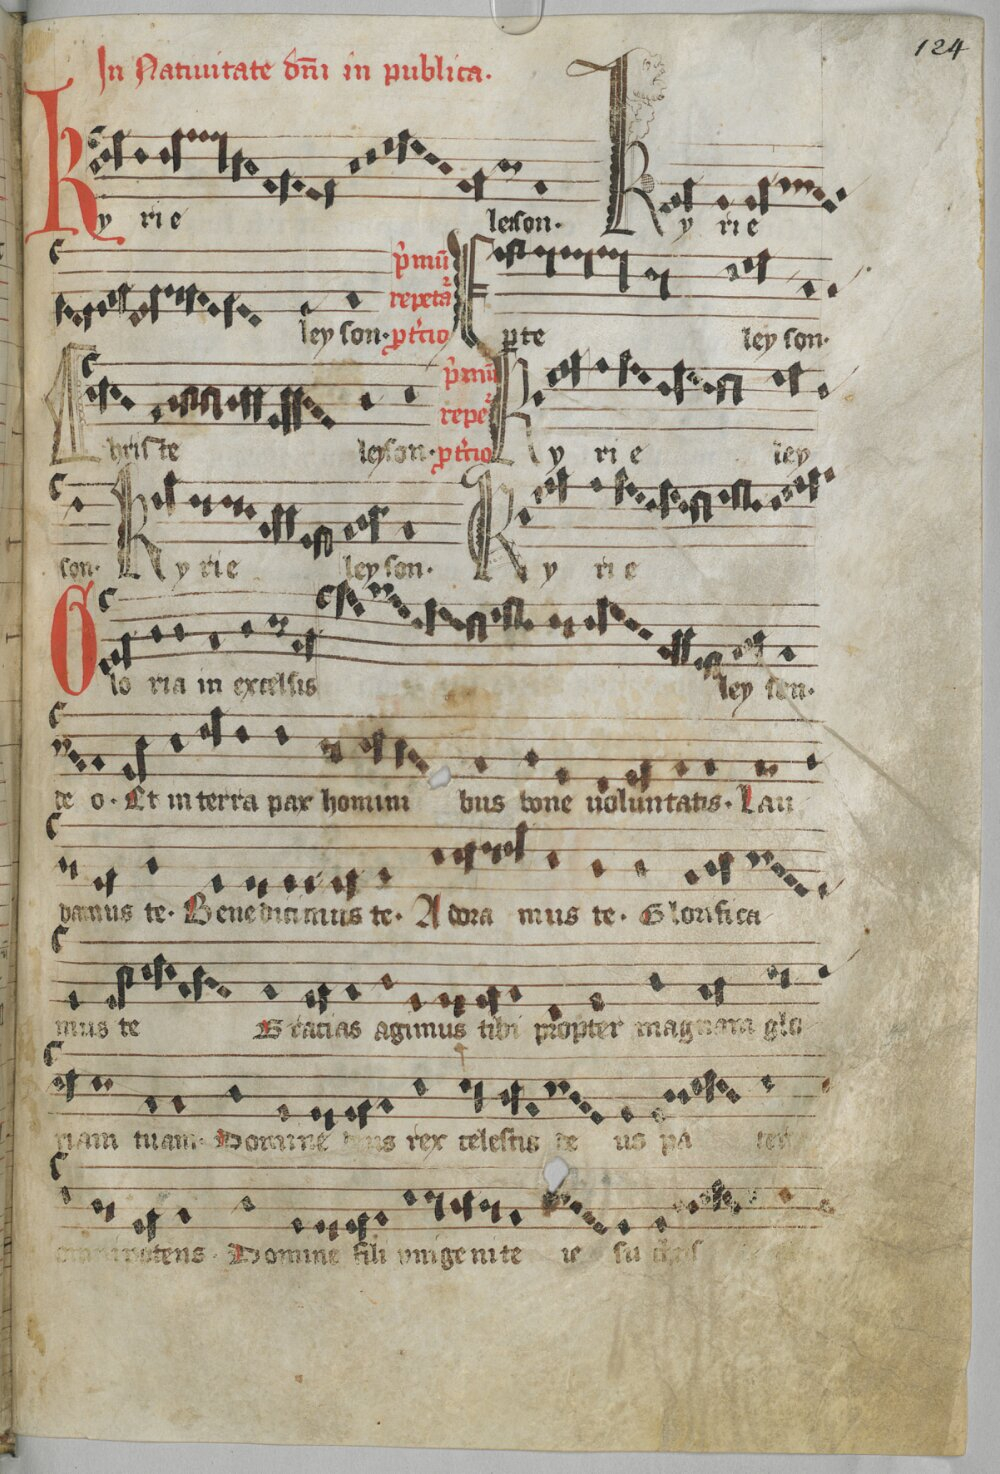 124
In Natiuitate dn̄i in publica.
Ky rie leison. Ky rie
ley son. p̄mū repeta᷑ ꝑt̄cio Xp̄te ley son.
Christe leyson. p̄mū repe᷑ ꝑt̄cio Ky rie ley
son. Ky rie ley son. Ky rie
Glo ria in excelsis ley son.
de o. Et in terra pax homini bus bone uoluntatis. Lau
damus te. Benedicimus te. Adora mus te. Glorifica
mus te Gracias agimus tibi propter magnam glo
riam tuam. Domine deus rex celestis de us pa ter
omnipotens. Domine fili vnigenite ie su